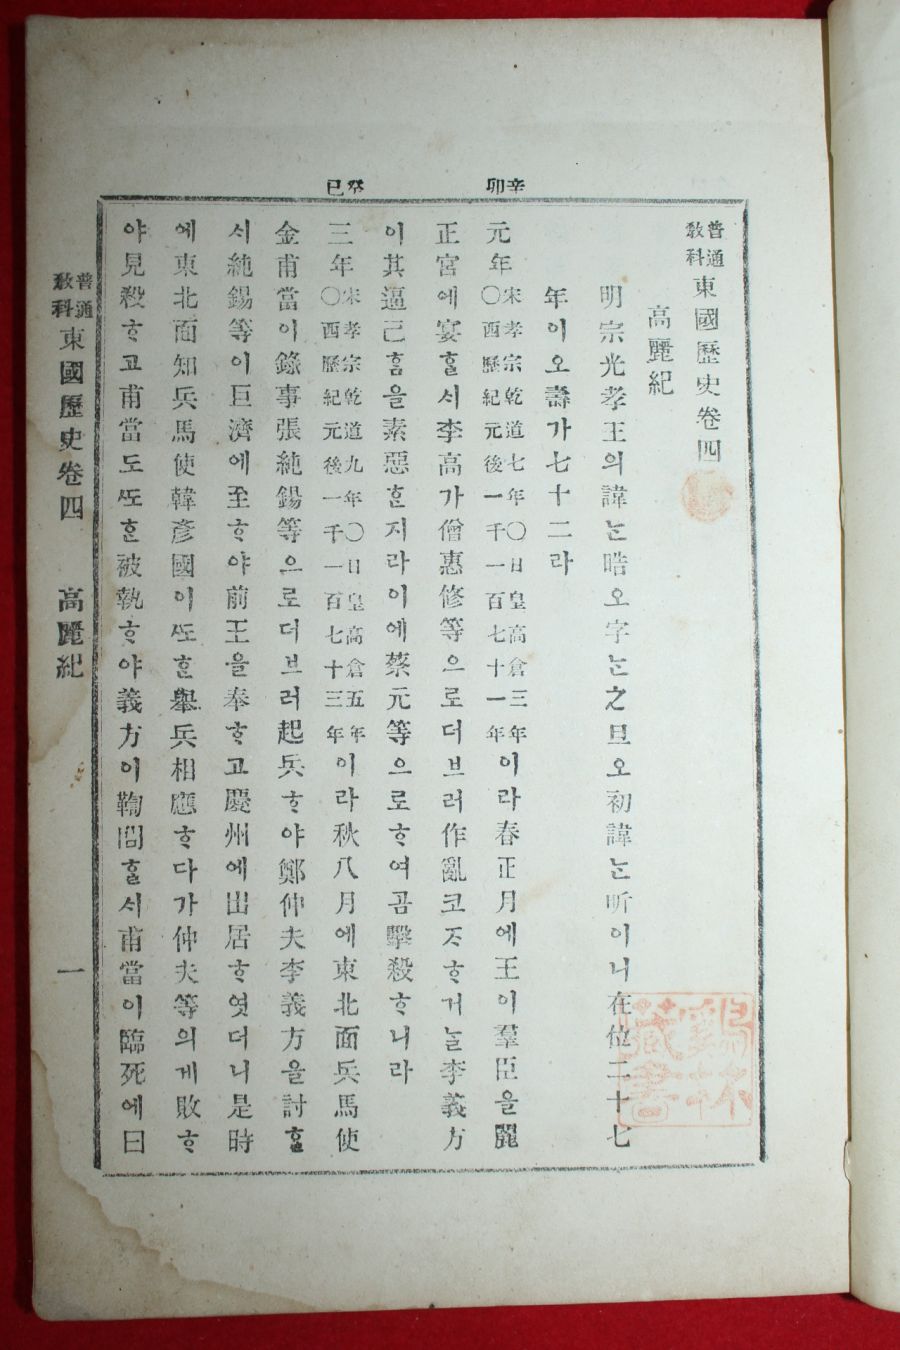 辛卯
癸巳
普通敎科東國歷史卷四
高麗紀
明宗光孝王의諱는晧오字는之旦오初諱는昕이니在位二十七
年이오壽가七十二라
元年宋孝宗乾道七年〇日皇高倉三年〇西歷紀元後一千一百七十一年이라春正月에王이羣臣을麗
正宮에宴ᄒᆞᆯ시李高가僧惠修等으로더브러作亂코ᄌᆞᄒᆞ거ᄂᆞᆯ李義方
이其逼己ᄒᆞᆷ을素惡ᄒᆞᆫ지라이에蔡元等으로ᄒᆞ여곰擊殺ᄒᆞ니라
三年宋孝宗乾道九年〇日皇高倉五年〇西歷紀元後一千一百七十三年이라秋八月에東北面兵馬使
金甫當이錄事張純錫等으로더브러起兵ᄒᆞ야鄭仲夫李義方을討ᄒᆞᆯ
시純錫等이巨濟에至ᄒᆞ야前王을奉ᄒᆞ고慶州에出居ᄒᆞ엿더니是時
에東北面知兵馬使韓彦國이ᄯᅩᄒᆞᆫ擧兵相應ᄒᆞ다가仲夫等의게敗ᄒᆞ
야見殺ᄒᆞ고甫當도ᄯᅩᄒᆞᆫ被執ᄒᆞ야義方이鞫問ᄒᆞᆯ시甫當이臨死에曰
普通敎科東國歷史卷四 高麗紀 一
鷄林藏書